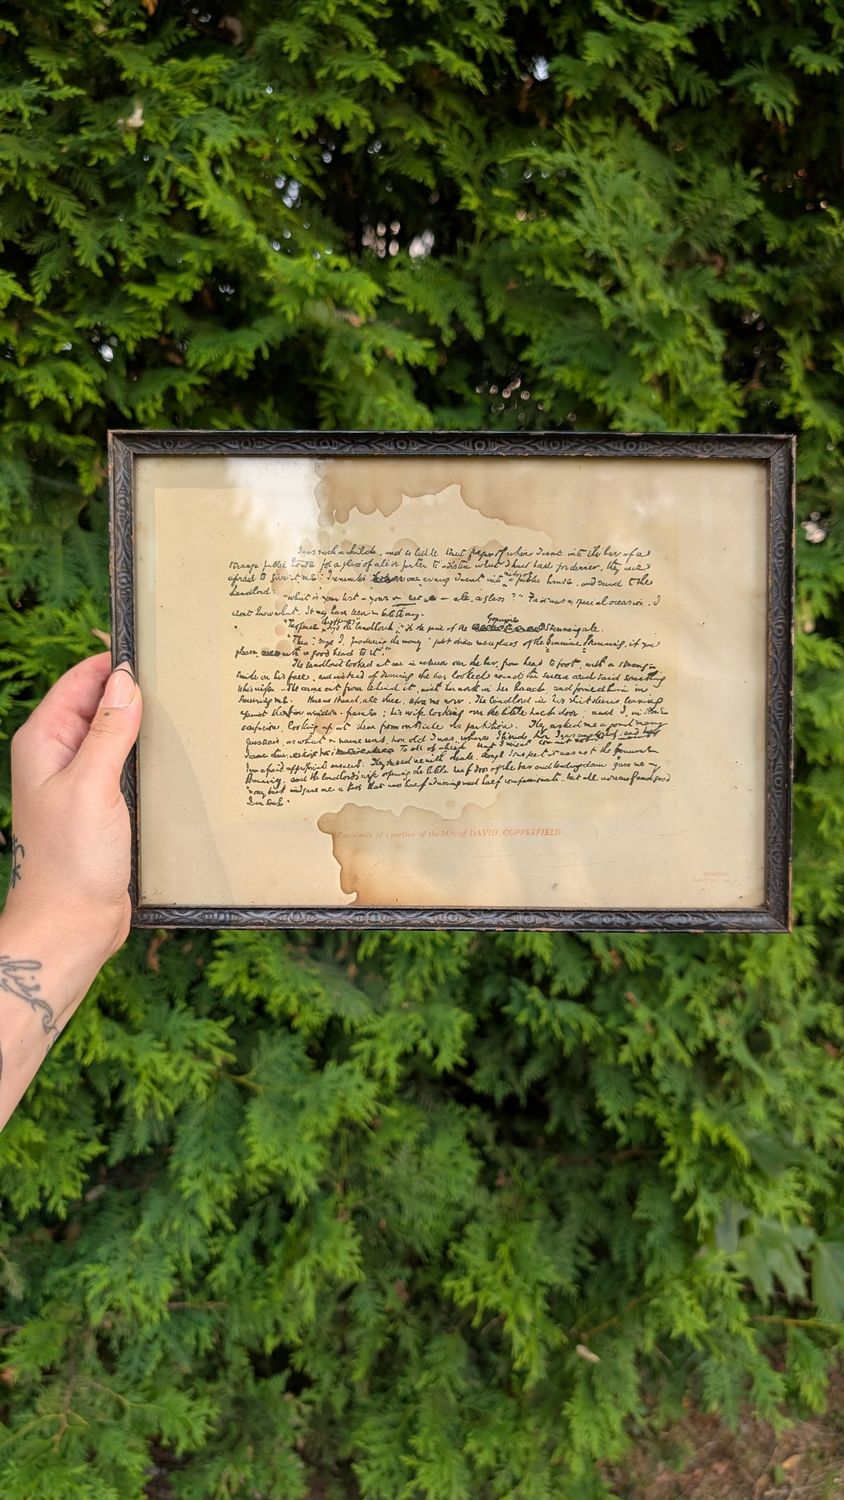 I was such a child, and so little that frequently when I went into the bar of a
strange public house for a glass of ale or porter to moisten what I had had for dinner, they were
afraid to give it me. I remember one evening I went into a public house, and said to the
landlord
"What is your best - your very best ale - a glass?" For it was a special occasion. I
don't know what. It may have been my birthday.
"Twopence halfpenny" says the landlord, "is the price of the Genuine Stunning ale.
"Then," says I, producing the money, "just draw me a glass of the Genuine Stunning, if you
please, with a good head to it."
The landlord looked at me in return over the bar, from head to foot, with a strange
smile on his face, and instead of drawing the beer looked round the screen and said something
to his wife. She came out from behind it, with her work in her hand, and joined him in
surveying me. Here we stand, all three, before me now. The landlord in his shirt sleeves leaning
against the bar window-frame; his wife looking over the little half door; and I, in some
confusion, looking up at them from outside the partition. They asked me a good many
questions, as what my name was, how old I was, where I lived,
To all of which, that I might commit nobody
I invented appropriate answers. They served me with the ale, though I suspect it was not the Genuine
Stunning, and the landlord's wife opening the little half door of the bar and bending down gave me my
money back and gave me a kiss that was half admiring and half compassionate, but all womanly and good
I'm sure.
Fac-simile of a portion of the MS. of DAVID COPPERFIELD
DICKENS